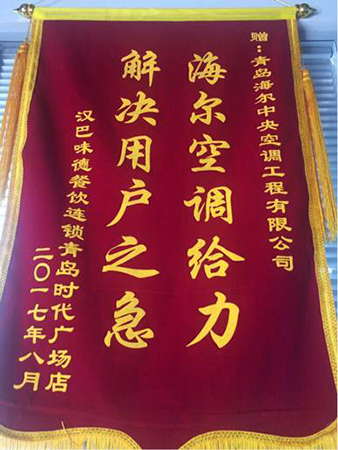 赠：青岛海尔中央空调工程有限公司
海尔空调给力
解决用户之急
汉巴味德餐饮连锁青岛时代广场店
二〇一七年八月